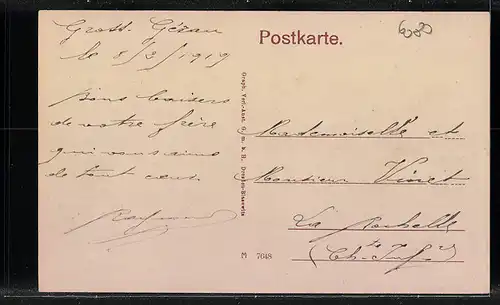 Gross. Gérau
le 8/3/1919
Bons baisers
de votre frère
qui vous aime
de tout coeur
Raymond
Postkarte.
Graph. Verl.-Anst. G. m. b. H., Dresden-Blasewitz
M 7048
Mademoiselle et
Monsieur Vinet
La Rochelle
(Ch-te Infre)